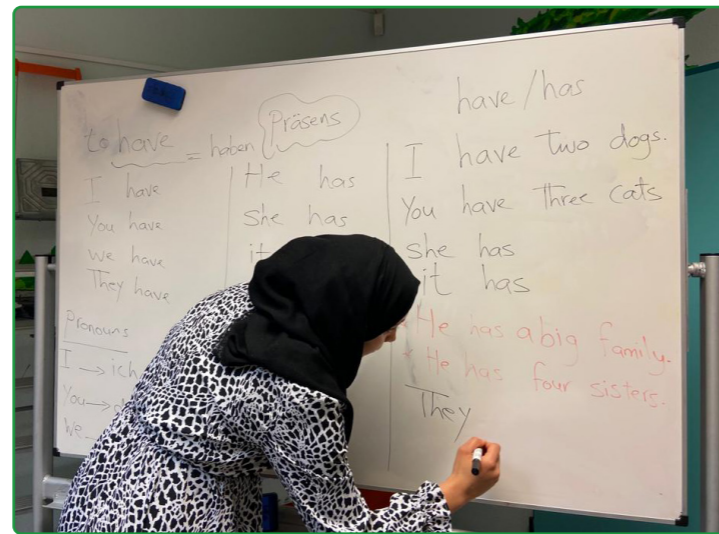 to have = haben
Präsens
I have
You have
we have
They have
Pronouns
I → ich
You →
We
He has
she has
it
have / has
I have two dogs.
You have three cats
she has
it has
He has a big family.
* He has four sisters.
They